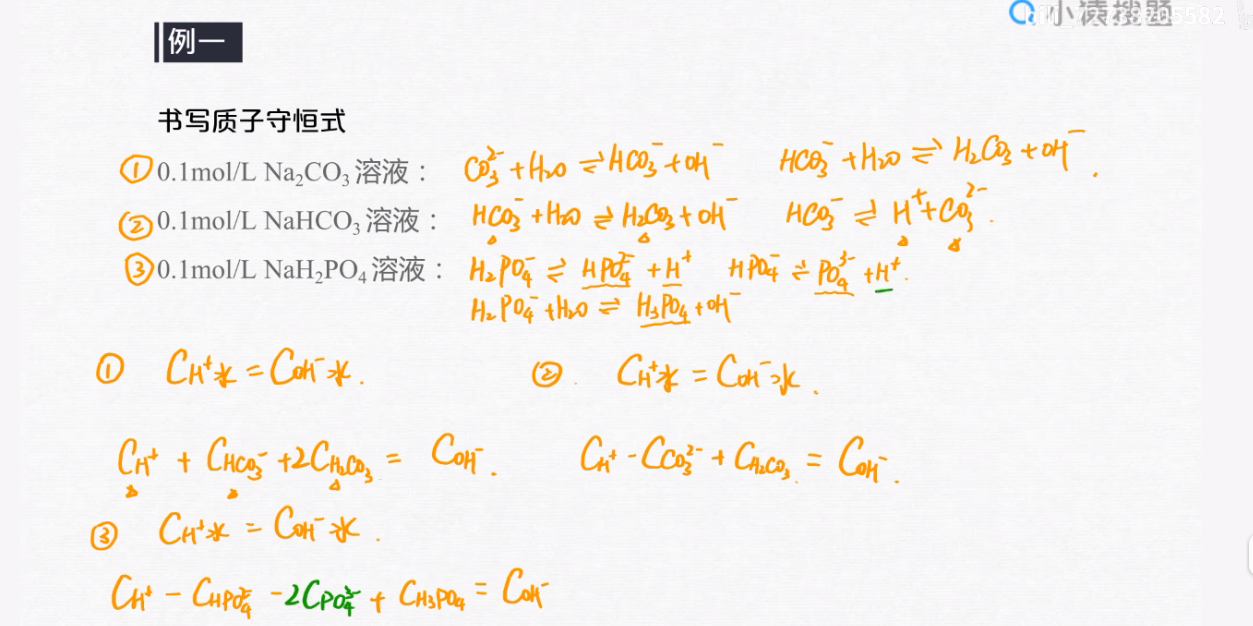 小猿搜题
例一
书写质子守恒式
① 0.1mol/L Na₂CO₃ 溶液： CO₃²⁻ + H₂O ⇌ HCO₃⁻ + OH⁻ HCO₃⁻ + H₂O ⇌ H₂CO₃ + OH⁻.
② 0.1mol/L NaHCO₃ 溶液： HCO₃⁻ + H₂O ⇌ H₂CO₃ + OH⁻ HCO₃⁻ ⇌ H⁺ + CO₃²⁻.
③ 0.1mol/L NaH₂PO₄ 溶液： H₂PO₄⁻ ⇌ HPO₄²⁻ + H⁺ HPO₄⁻ ⇌ PO₄³⁻ + H⁺.
H₂PO₄⁻ + H₂O ⇌ H₃PO₄ + OH⁻
① C_H⁺水 = C_OH⁻水. ②. C_H⁺水 = C_OH⁻水.
C_H⁺ + C_HCO₃⁻ + 2C_H₂CO₃ = C_OH⁻. C_H⁺ - C_CO₃²⁻ + C_H₂CO₃ = C_OH⁻.
③ C_H⁺水 = C_OH⁻水.
C_H⁺ - C_HPO₄²⁻ - 2C_PO₄³⁻ + C_H₃PO₄ = C_OH⁻